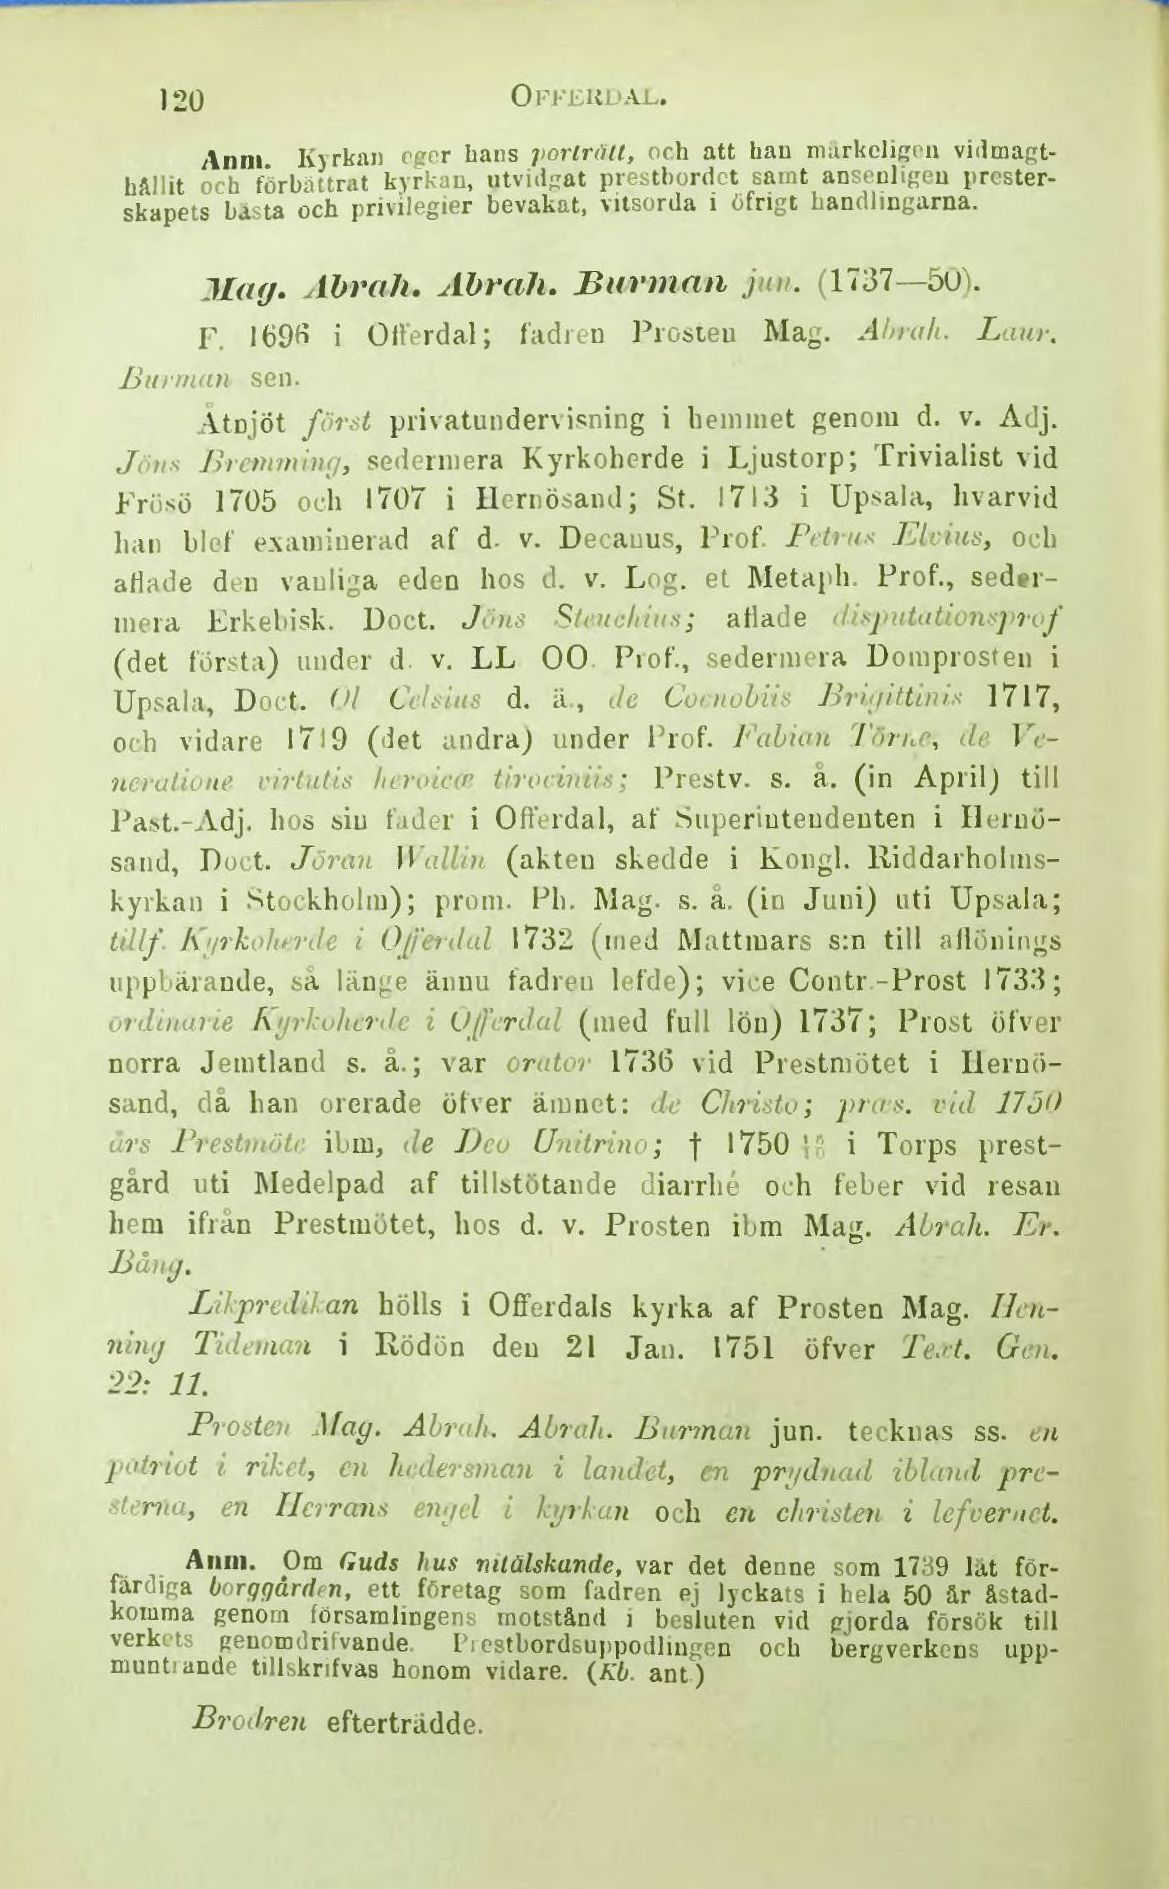 120 OFFERDAL.
Anm. Kyrkan eger hans porträtt, och att han märkeligen vidmagt-
hållit och förbättrat kyrkan, utvidgat prestbordet samt ansenligen prester-
skapets bästa och privilegier bevakat, vitsorda i öfrigt handlingarna.
Mag. Abrah. Abrah. Burman jun. (1737—50).
F. 1696 i Offerdal; fadren Prosten Mag. Abrah. Laur.
Burman sen.
Åtnjöt först privatundervisning i hemmet genom d. v. Adj.
Jöns Bremming, sedermera Kyrkoherde i Ljustorp; Trivialist vid
Frösö 1705 och 1707 i Hernösand; St. 1713 i Upsala, hvarvid
han blef examinerad af d. v. Decanus, Prof. Petrus Elvius, och
aflade den vanliga eden hos d. v. Log. et Metaph. Prof., seder-
mera Erkebisk. Doct. Jöns Steuchius; aflade disputationsprof
(det första) under d. v. LL OO. Prof., sedermera Domprosten i
Upsala, Doct. Ol Celsius d. ä., de Coenobiis Brigittinis 1717,
och vidare 1719 (det andra) under Prof. Fabian Törne, de Ve-
neratione virtutis heroicæ tirociniis; Prestv. s. å. (in April) till
Past.-Adj. hos sin fader i Offerdal, af Superintendenten i Hernö-
sand, Doct. Jöran Wallin (akten skedde i Kongl. Riddarholms-
kyrkan i Stockholm); prom. Ph. Mag. s. å. (in Juni) uti Upsala;
tillf. Kyrkoherde i Offerdal 1732 (med Mattmars s:n till aflönings
uppbärande, så länge ännu fadren lefde); vice Contr.-Prost 1733;
ordinarie Kyrkoherde i Offerdal (med full lön) 1737; Prost öfver
norra Jemtland s. å.; var orator 1736 vid Prestmötet i Hernö-
sand, då han orerade öfver ämnet: de Christo; præs. vid 1750
års Prestmöte ibm, de Deo Unitrino; † 1750 i Torps prest-
gård uti Medelpad af tillstötande diarrhé och feber vid resan
hem ifrån Prestmötet, hos d. v. Prosten ibm Mag. Abrah. Er.
Bång.
Likpredikan hölls i Offerdals kyrka af Prosten Mag. Hen-
ning Tideman i Rödön den 21 Jan. 1751 öfver Text. Gen.
22: 11.
Prosten Mag. Abrah. Abrah. Burman jun. tecknas ss. en
patriot i riket, en hedersman i landet, en prydnad ibland pre-
sterna, en Herrans engel i kyrkan och en christen i lefvernet.
Anm. Om Guds hus nitälskande, var det denne som 1739 lät för-
färdiga borggården, ett företag som fadren ej lyckats i hela 50 år åstad-
komma genom församlingens motstånd i besluten vid gjorda försök till
verkets genomdrifvande. Prestbordsuppodlingen och bergverkens upp-
muntrande tillskrifvas honom vidare. (Kb. ant.)
Brodren efterträdde.